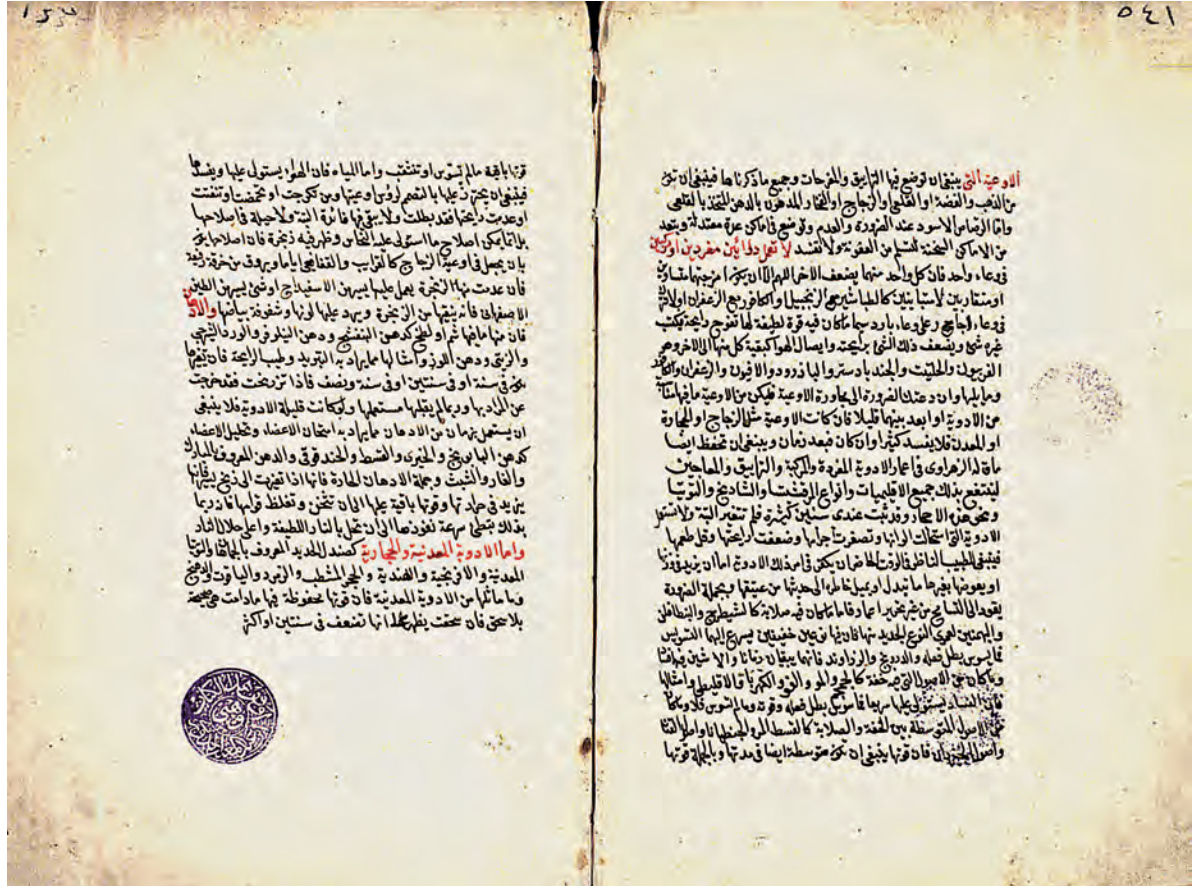 ٥٤١
الاوعية التى ينبغى ان توضع فيها الترايق والمفرحات وجميع ماذكرناها فينبغى ان تكون
من الذهب والفضة او القلعى والزجاج او الفخار المدهون بالدهن المتخذ بالقلعى
واما الرصاص الاسود عند الضرورة والعدم وتوضع فى اماكن معتدلة ويتعد
من الاماكن السخنة لتسلم من العفونة ولا تفسد لا تعمل دوائين مفردين او مركبين
فى وعاء واحد فان كل واحد منهما يضعف الاخر اللهم الا ان يكون امزجتها متساوية
او متقاربين لاسيابيتان كالطباشير مع الزنجبيل والكافور مع الزعفران اولا تترك
فى وعاء زجاج وعاء بارد سيما ما كان فيه قوة لطيفة لها تفوح رايحة يكتب
غيره شئ ويضعف ذلك الشئ برايحته وايصال الهوا كبقية كل منها الى الاخر وهو
الفربيون والحلتيت والجندبادستر والباذزرد والافيون والزعفران والكافور
وما يليها وان دعتك الضرورة الى مجاورة الاوعية فليكن من الاوعية مافيها متانة
من الادوية او ابعد بينهما قليلا فان كانت الاوعية مثل الزجاج او الحجارة
او المعدن فلا يفسد كثيرا وان كان فبعد زمان وينبغى ان تحفظ ايضا
ماقاله الزهراوى فى اعمار الادوية المفردة والمركبة والترايق والمعاجين
لينتفع بذلك جميع الاقليميات وانواع المرقشيتا والشاذنج والتوتيا
ونحو هذه الاحجار وقد ثبت عندى سنين كثيرة فلم تتغير البتة ولا تستعمل
الادوية التى استحالت الوانها وتصغرت اجرامها وضعفت رايحتها وقل طعمها
فينبغى للطبيب الناظر فى الوقت الحاضر ان يكون فى امر ذلك الادوية اما ان يزيد فى وزنها
او يعوضها بغيرها ما تبدل او يميل خاطره الى حديثها من عتيقها وبجملة المفردة
يعود الى التسامح من غير تحرير اعمار فاما ما كان فيه صلابة كالشيطرج والبنطافلن
والبهمنين لعمرى النوع الجديد منها فان فيها نوعين خفيفين يسرع اليها التسويس
فما يسوس بطل فعله والدرونج والزراوند فانها يبقان زمانا والاشين فيه اقتا
وما كان من الاصول التى فيه خفة كالحجر والمو والفو والكهربا
فان الفساد يستولى عليها سريعا فما سوس بطل فعله وقوته وما لم يسوس فلا وما كان
من الاصول المتوسطة بين الخفة والصلابة كالقسط المر والجنطيانا واصل القثا
واصول فان قوتها ينبغى ان تكون متوسطة ايضا فى مدتها وبالجملة قوتها
قوتها باقية مالم تسوس او تتثقب واما المياه فان الهوا يستولى عليها ويفسدها
فينبغى ان يحترز عليها بالتصميم لرؤس اوعيتها ومن تكرجت او تحمضت او تفتتت
او عدمت رايحتها فقد بطلت ولا يبقى فيها فائدة البتة ولا حيلة فى اصلاحها
بل انما يمكن اصلاح ما استولى عليه النحاس وظهر فيه زنجرة فان اصلاحها يكون
بان يجعل فى اوعية الزجاج كالقراب والتفافيح اياما ويروق من خرقة رفيعة
فان عدمت منها الزنجرة يعمل عليها يسير من الاسفيداج او شئ يسير من الطين
الاصفهانى فانه ينقيها من الزنجرة ويرد عليها لونها وشفوفة بياضها والادهان
فان منها ما فيها ثمر او لطخ كدهن البنفسج ودهن النيلوفر والورد الشيرجى
والزيتى ودهن اللوز وامثالها مما يراد به التبريد وطيب الرايحة فان تغيرها
يكون فى سنة او فى سنتين او فى سنة ونصف فاذا تزرنخت فقد خرجت
عن المراد بها وربما لم يقبلها مستعملها ولو كانت قليلة الادوية فلا ينبغى
ان يستعمل بزمان من الادهان مما يراد به اسخان الاعضاء وتحليل الاعضاء
كدهن البابونج والخيرى والقسط والحندقوقى والدهن المعروف المبارك
والغار والشبث وجملة الادهان الحادة فانها اذا تغيرت الى زنخ يسير فانها
يزيد فى حرارتها وقوتها باقية عليها الى ان تثخن وتغلظ قوامها فان ربما
بذلك تبطئ سرعة نفوذها الى ان تحل بالنار اللطيفة واعلى حلال النار
واما الادوية المعدنية والحجارية كصندل الحديد المعروف بالجماهن والتوتيا
المعدنية والافرنجية والهندية والحجر المشطب والزمرد والياقوت والدهنج
وما ماثلها من الادوية المعدنية فان قوتها محفوظة فيها مادامت صحيحة
بلا سحق فان سحقت يظهر انها تضعف فى سنتين او اكثر